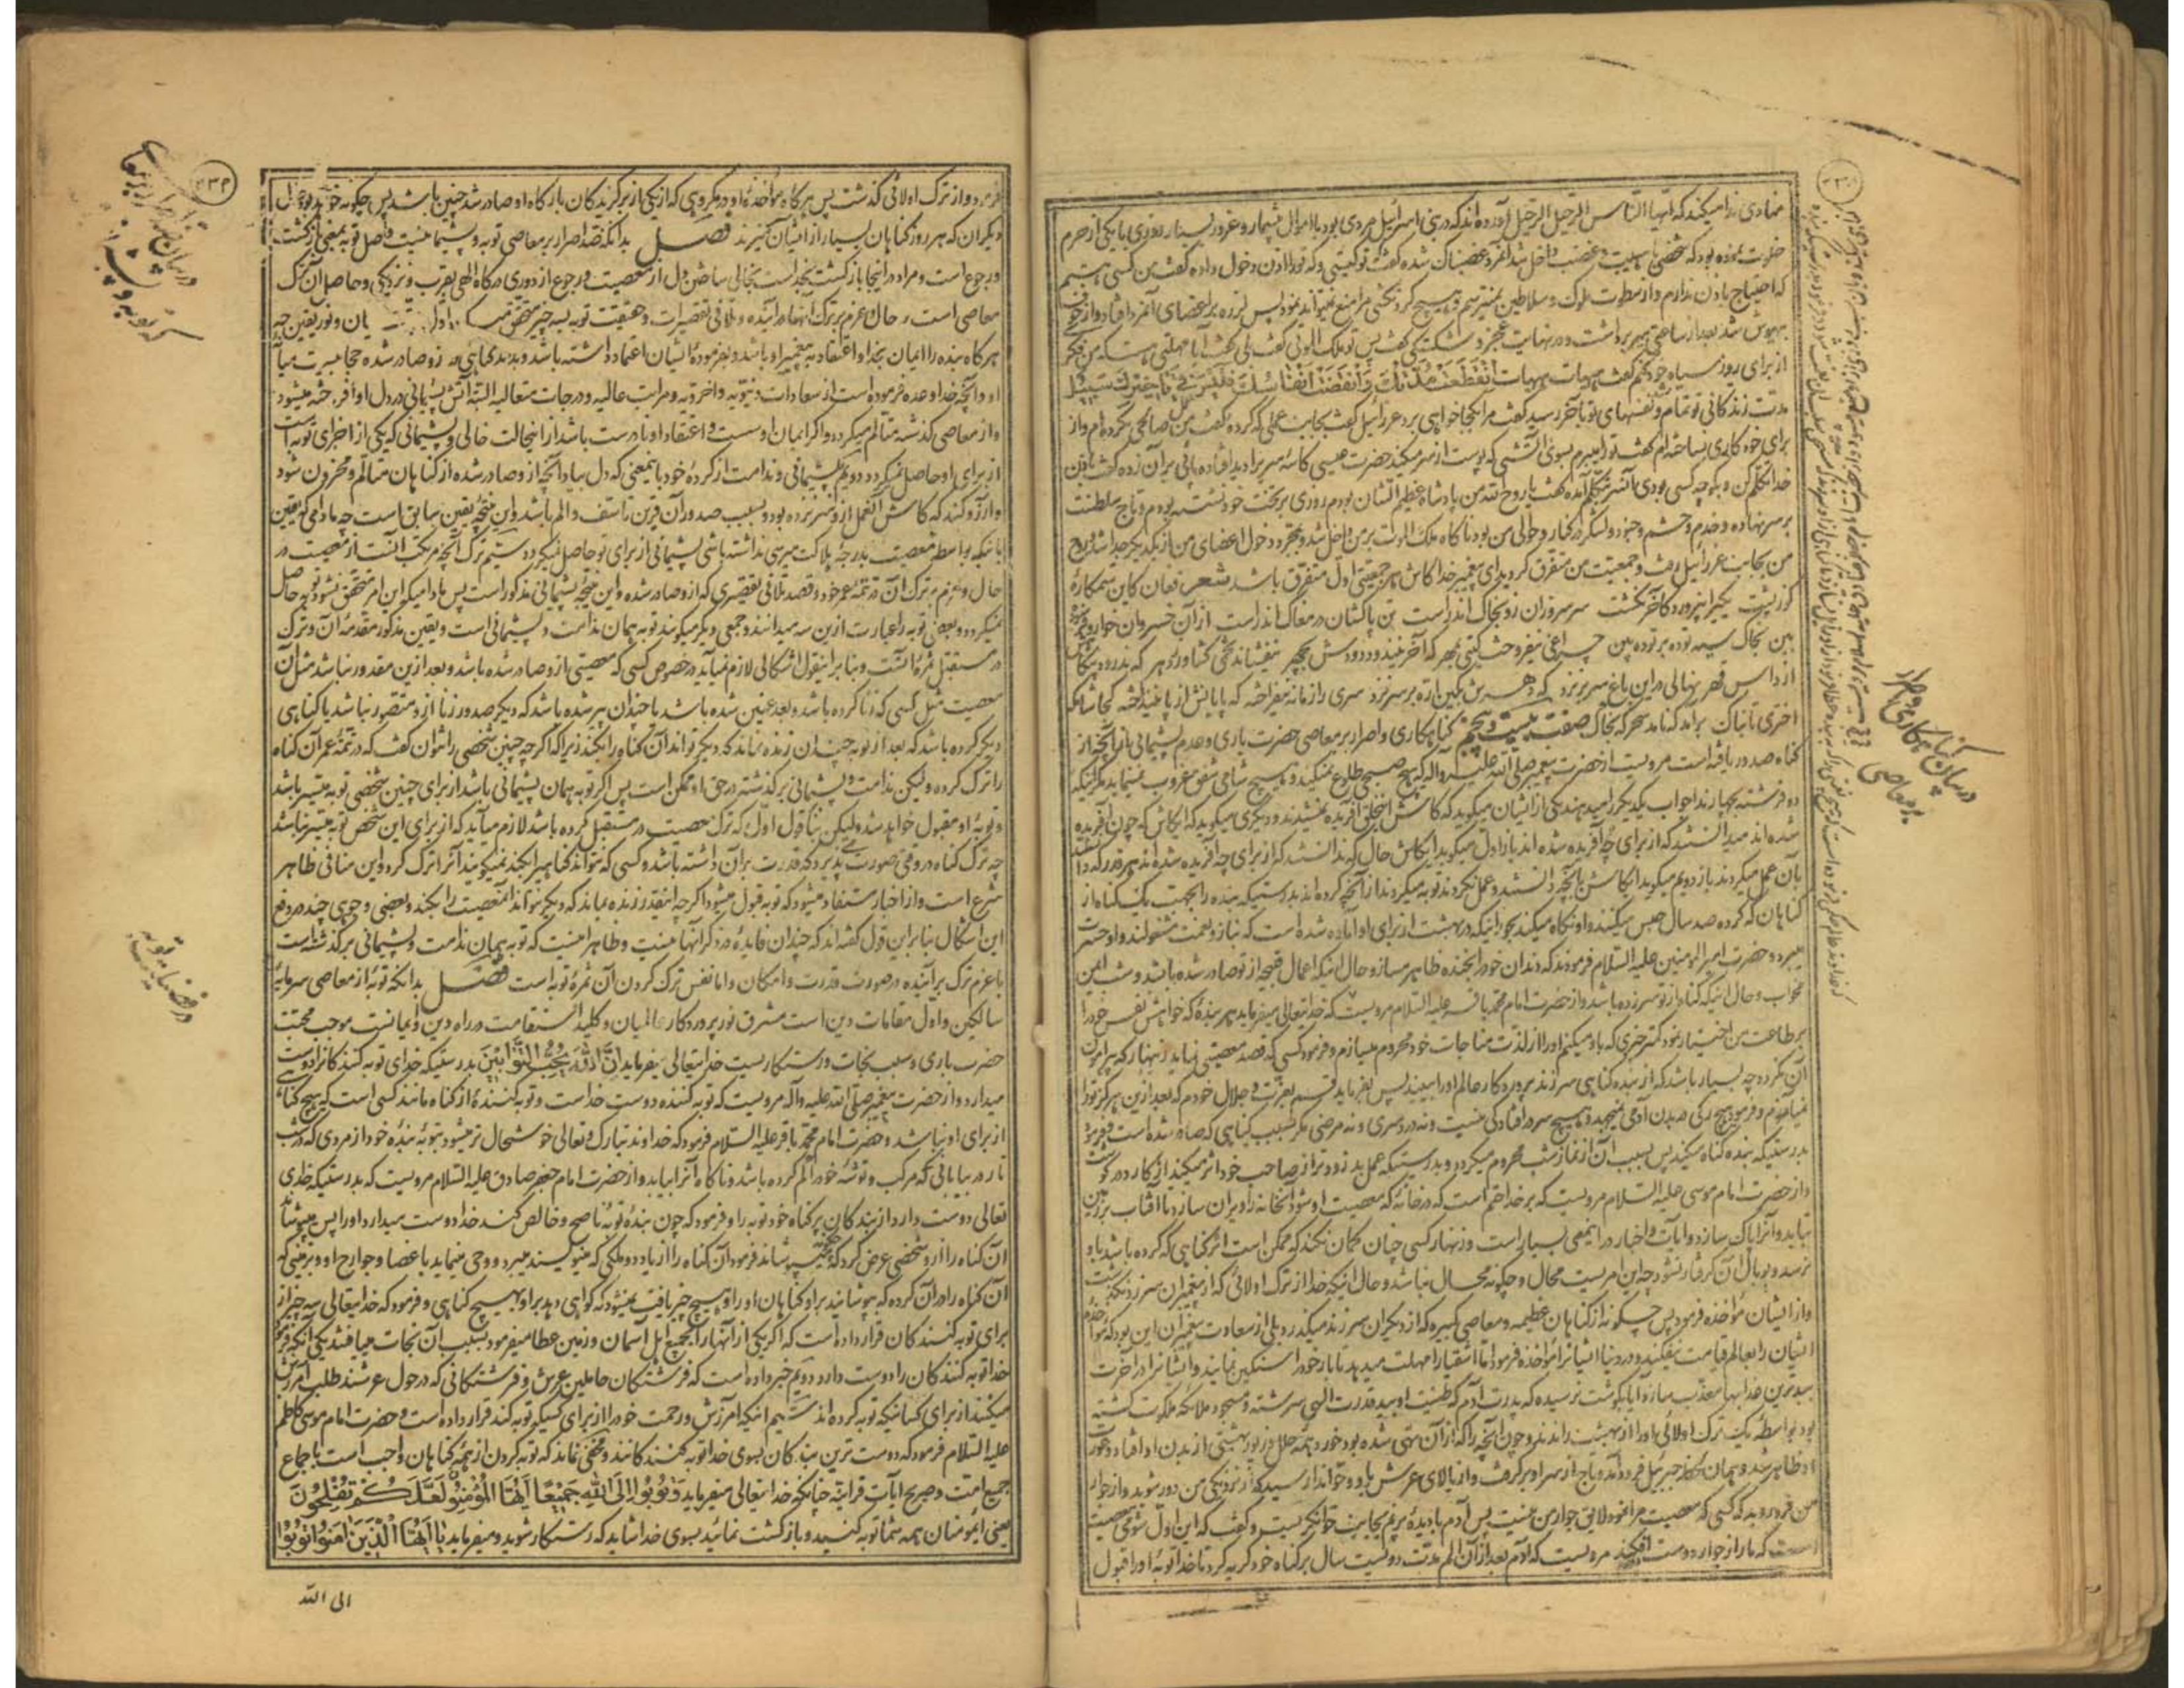 منادی ندا میکند که ایها الناس الرحیل الرحیل آورده اند که در بنی اسرائیل مردی بود با اموال بیشمار و غرور بسیار روزی با یکی از حرم
خلوت نموده بود که شخصی با هیبت و غضب داخل شد آنمرد غضبناک شده گفت تو کیستی و که تو را اذن دخول داده گفت من کسی هستیم
که احتیاج باذن ندارم و از سطوت ملوک و سلاطین نمیترسم و هیچ گردنکشی مرا منع نمیتواند نمود پس لرزه بر اعضای آنمرد افتاد و از خوف
بیهوش شد بعد از ساعتی سر برداشت و در نهایت عجز و شکستگی گفت پس تو ملک الموتی گفت بلی گفت آیا مهلتی هست که من فکر
از برای روز سیاه خود کنم گفت هیهات هیهات انقطعت مدتک وانقضت انفاسک فلیس فی تاخیرک سبیل
مدت زندگانی تو تمام و نفسهای تو بآخر رسید گفت مرا بکجا خواهی برد عزرائیل گفت بجانب عملی که کرده گفت من عمل صالحی نکرده ام و از
برای خود کاری نساخته ام گفت تو را میبرم بسوی آتشی که پوست از سر میکند حضرت عیسی کاسه سری را دید افتاده پائی بر آن زده گفت باذن
خدا تکلم کن و بگو چه کسی بودی آنسر بتکلم آمده گفت یا روح الله من پادشاه عظیم الشان بودم روزی بر تخت خود نشسته بودم و تاج سلطنت
بر سر نهاده و خدم و حشم و جنود و لشگر در کنار و حوالی من بود ناگاه ملک الموت بر من داخل شد و بمجرد دخول اعضای من از یکدیگر جدا شد و روح
من بجانب عزرائیل رفت و جمعیت من متفرق گردید ای پیغمبر خدا کاش هر جمعیتی اول متفرق باشد شعر فغان کاین ستمکارهٔ
کوژپشت یکیرا نپرورد کآخر نکشت سر سروران زو بخاک اندر است تن پاکشان در مغاک اندر است از آن خسروان خوار و
بین بخاک سیه توده بر توده بین چراغی نیفروخت گیتی بمهر که آخر نیندود دودش بچهر نیفشاند تخمی کشاورز دهر که ندرود بیگاهش
از داس قهر نهالی در این باغ سر بر نزد که دهرش بکین اره بر سر نزد سری را زمانه نیفراخته که پایانش از پا نینداخته کجا شامگه
اختری تابناک برآمد که نامد سحرگه بخاک صفت بیست و پنجم گناهکاری و اصرار بر معاصی حضرت باری و عدم پشیمانی از آنچه از
گناه صدور یافته است مرویست از حضرت پیغمبر صلی الله علیه و آله که هیچ صبحی طلوع نمیکند و هیچ شامی شفق غروب نمینماید مگر اینکه
دو فرشته بچهار ندا جواب یکدیگر را میدهند یکی از ایشان میگوید که کاش این خلق آفریده نمیشدند و دیگری میگوید که ایکاش که چون آفریده
شده اند میدانستند که از برای چه آفریده شده اند باز اول میگوید ایکاش حال که ندانستند که از برای چه آفریده شده اند بهر قدر که دانستند
بآن عمل میکردند باز دویم میگوید ایکاش بآنچه دانستند و عمل نکردند توبه میکردند از آنچه کرده اند بدرستیکه بنده را بجهت یک گناه از
گناهان که کرده صد سال حبس میکنند و او نگاه میکند بحورانیکه در بهشت از برای او آماده شده است که بناز و نعمت مشغولند و او حسرت
میبرد و حضرت امیر المومنین علیه السلام فرمودند که دندان خود را بخنده ظاهر مساز و حال اینکه اعمال قبیحه از تو صادر شده باشد و شب ایمن
مخواب و حال اینکه گناه از تو سر زده باشد و از حضرت امام محمد باقر علیه السلام مرویست که خدایتعالی میفرماید هر بندهٔ که خواهش نفس خود را
بر طاعت من اختیار نمود کمتر چیزی که باو میکنم او را از لذت مناجات خود محروم میسازم و فرمود کسی که قصد معصیتی نماید زنهار که پیرامون
آن نگردد چه بسیار باشد که از بنده گناهی سر زند پروردگار عالم او را ببیند پس بفرماید قسم بعزت و جلال خودم که بعد از این هرگز تو را
نیامرزم و فرمود هیچ رگی در بدن آدمی نمیجهد و هیچ سر در افتادگی نیست و نه دردسری و نه مرضی مگر بسبب گناهی که صادر شده است و فرمود
بدرستیکه بنده گناه میکند پس بسبب آن از نماز شب محروم میگردد و بدرستیکه عمل بد زودتر از صاحب خود اثر میکند از کارد در گوشت
و از حضرت امام موسی علیه السلام مرویست که بر خدا حتم است که در خانهٔ که معصیت او شود آنخانه را ویران سازد تا آفتاب بر زمین
بتابد و آنرا پاک سازد و آیات و اخبار در اینمعنی بسیار است و زنهار کسی چنان گمان نکند که ممکن است اثر گناهی که کرده باشد باو
نرسد و بوبال آن گرفتار نشود چه این امریست محال و چگونه محال نباشد و حال اینکه خدا از ترک اولائی که از پیغمبران سر زد نگذشت
و از ایشان مؤاخذه فرمود پس چگونه از گناهان عظیمه و معاصی کبیره که از دیگران سر زند میگذرد بلی از سعادت پیغمبران این بود که مواخذه
ایشان را بعالم قیامت نیفکند و در دنیا ایشانرا مؤاخذه فرمود اما اشقیا را مهلت میدهد تا بار خود را سنگین نمایند و ایشانرا در آخرت
بدترین عذابها معذب سازد آیا بگوشت نرسیده که پدرت آدم که طینت او بید قدرت الهی سرشته و مسجود ملائکه ملکوت گشته
بود بواسطهٔ یک ترک اولائی او را از بهشت راندند و چون آنچه را که از آن نهی شده بود خورد همه حلل و زیور بهشتی از بدن او افتاد و عورت
او ظاهر شد و همان لحظه جبرئیل فرود آمد و تاج از سر او برگرفت و از بالای عرش باو و حوا ندا رسید که از نزدیکی من دور شوید و از جوار
من فرود روید که کسی که معصیت مرا نمود لایق جوار من نیست پس آدم با دیدهٔ پر نم بجانب حوا نگریست و گفت که این اول شومی معصیت
است که ما را از جوار دوست افکند مرویست که آدم بعد از آن الم مدت دویست سال بر گناه خود گریه کرد تا خدا توبهٔ او را قبول
در بیان گناهکاری و اصرار
بر معاصی
۲۳۴
فرمود و از ترک اولائی گذشت پس هرگاه مؤاخذهٔ او در مکروهی که از یکی از برگزیدگان بارگاه او صادر شد چنین باشد پس چگونه خواهد بود حال
دیگران که هر روز گناهان بسیار از ایشان سر زند فصل بدانکه ضد اصرار بر معاصی توبه و پشیمانیست و اصل توبه بمعنی بازگشت
و رجوع است و مراد در اینجا بازگشت بخداست بخالی ساختن دل از معصیت و رجوع از دوری درگاه الهی بقرب و نزدیکی و حاصل آن ترک
معاصی است در حال و عزم بر ترک آنها در آینده و تلافی تقصیرات و حقیقت توبه بسه چیز متحقق میگردد اول ایمان و نور یقین چه
هرگاه بنده را ایمان بخدا و اعتقاد به پیغمبر او باشد و بفرمودهٔ ایشان اعتماد داشته باشد و بداند گناهی که از او صادر شده حجابیست میان
او و آنچه خدا وعده فرموده است از سعادات دنیویه و اخرویه و مراتب عالیه و درجات متعالیه البته آتش پشیمانی در دل او افروخته میشود
و از معاصی گذشته متالم میگردد و اگر ایمان او سست و اعتقاد او نادرست باشد از اینحالت خالی و پشیمانی که یکی از اجزای توبه است
از برای او حاصل نمیگردد دویم پشیمانی و ندامت از کردهٔ خود باینمعنی که دل بیاد آنچه از او صادر شده از گناهان متالم و محزون شود
و آرزو کند که کاش آنعمل از او سر نزده بود و بسبب صدور آن قرین تاسف و الم باشد و این نتیجهٔ یقین سابق است چه مادامی که یقین
باینکه بواسطه معصیت بدرجه هلاکت میرسی نداشته باشی پشیمانی از برای تو حاصل نمیگردد سیم ترک آنچه مرتکب آنست از معصیت در
حال و عزم بر ترک آن در تتمه عمر خود و قصد تلافی تقصیری که از او صادر شده و این نتیجهٔ پشیمانی مذکور است پس مادامیکه این امر متحقق نشود توبه حاصل
نمیگردد و بعضی توبه را عبارت از این سه میدانند و جمعی دیگر میگویند توبه همان ندامت و پشیمانی است و یقین مذکور مقدمهٔ آن و ترک
در مستقبل ثمرهٔ آنست و بنا بر اینقول اشکالی لازم نمیآید در خصوص کسی که معصیتی از او صادر شده باشد و بعد از این مقدور نباشد مثل آن
معصیت مثل کسی که زنا کرده باشد و بعد عنین شده باشد یا چندان پیر شده باشد که دیگر صدور زنا از او متصور نباشد یا گناهی
دیگر کرده باشد که بعد از توبه چندان زنده نماند که دیگر تواند آن گناه را بکند زیرا که اگر چه چنین شخصی را نتوان گفت که در تتمهٔ عمر آن گناه
را ترک کرده ولیکن ندامت و پشیمانی بر گذشته در حق او ممکن است پس اگر توبه همان پشیمانی باشد از برای چنین شخصی توبه میسر باشد
و توبهٔ او مقبول خواهد شد ولیکن بنا بقول اول که ترک معصیت در مستقبل کرده باشد لازم میآید که از برای این شخص توبه میسر نباشد
چه ترک گناه در وقتی صورت پذیرد که قدرت بر آن داشته باشد و کسی که نتواند گناهیرا بکند نمیگویند آنرا ترک کرد و این منافی ظاهر
شرع است و از اخبار مستفاد میشود که توبه قبول میشود اگر چه اینقدر زنده نماند که دیگر بتواند آنمعصیت را بکند و بعضی وجوهی چند در دفع
این اشکال بنا بر این قول گفته اند که چندان فایدهٔ در ذکر آنها نیست و ظاهر اینست که توبه همان ندامت و پشیمانی بر گذشته است
با عزم ترک بر آینده در صورت قدرت و امکان و اما نفس ترک کردن آن ثمرهٔ توبه است فصل بدانکه توبهٔ از معاصی سرمایهٔ
سالکین و اول مقامات دین است مشرق نور پروردگار عالمیان و کلید استقامت در راه دین و ایمانست موجب محبت
حضرت باری و سبب نجات و رستگاریست خدایتعالی میفرماید ان الله یحب التوابین بدرستیکه خدای توبه کنندگانرا دوست
میدارد و از حضرت پیغمبر صلی الله علیه و آله مرویست که توبه کننده دوست خداست و توبه کنندهٔ از گناه مانند کسی است که هیچ گناه
از برای او نباشد و حضرت امام محمد باقر علیه السلام فرمود که خداوند تبارک و تعالی خوشحال تر میشود بتوبهٔ بندهٔ خود از مردی که در شب
تار در بیابانی که مرکب و توشه خود را گم کرده باشد و ناگاه آنرا بیابد و از حضرت امام جعفر صادق علیه السلام مرویست که بدرستیکه خدای
تعالی دوست دارد از بندگان پر گناه خود توبه را و فرمود که چون بنده توبهٔ ناصح و خالص کند خدا دوست میدارد او را پس میپوشاند
آن گناه را از او شخصی عرض کرد که چگونه میپوشاند فرمود آن گناه را از یاد دو ملکی که مینویسند میبرد و وحی مینماید باعضا و جوارح او و بزمینی که
آن گناه را در آن کرده که بپوشانید بر او گناهان او را و هیچ چیز یافت نمیشود که گواهی دهد بر او بهیچ گناهی و فرمود که خدایتعالی سه چیز از
برای توبه کنندگان قرار داده است که اگر یکی از آنها را بجمیع اهل آسمان و زمین عطا میفرمود بسبب آن نجات مییافتند یکی آنکه فرموده
خدا توبه کنندگان را دوست دارد دویم خبر داده است که فرشتگان حاملین عرش و فرشتگانی که در حول عرشند طلب آمرزش
میکنند از برای کسانیکه توبه کرده اند سیم اینکه آمرزش و رحمت خود را از برای کسیکه توبه کند قرار داده است و حضرت امام موسی کاظم
علیه السلام فرمود که دوست ترین بندگان بسوی خدا توبه کنندگانند و مخفی نماند که توبه کردن از همهٔ گناهان واجب است باجماع
جمیع امت و صریح آیات قرآنیه چنانکه خدایتعالی میفرماید وَتُوبُوا اِلَی اللهِ جَمیعًا اَیُّهَا الْمُؤْمِنُونَ لَعَلَّکُمْ تُفْلِحُونَ
یعنی ای مومنان همه شما توبه کنید و بازگشت نمائید بسوی خدا شاید که رستگار شوید و میفرماید یا اَیُّهَا الَّذینَ امَنُوا تُوبُوا
الی الله